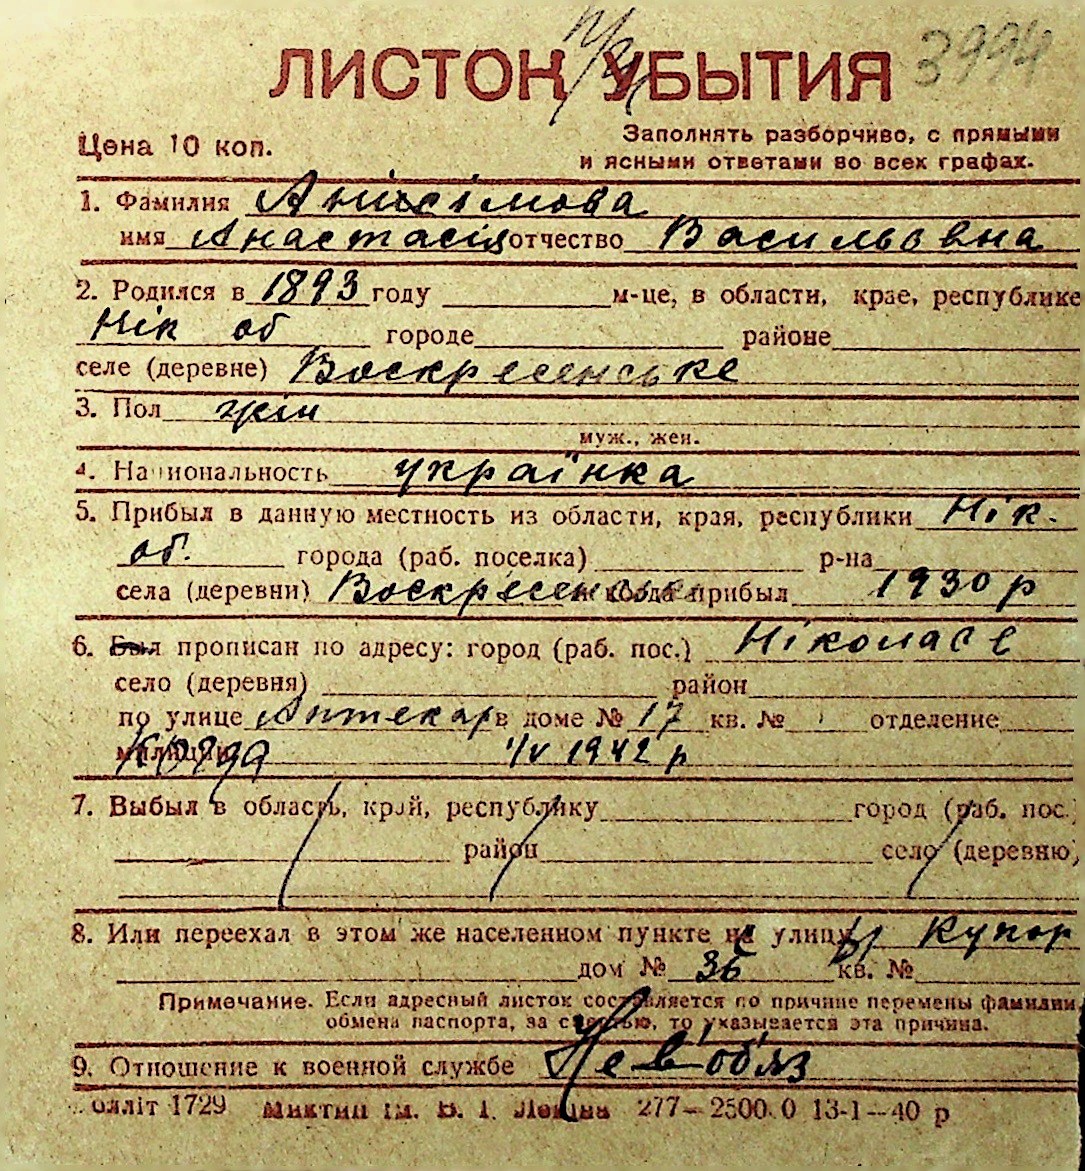 3994
ЛИСТОК УБЫТИЯ
Цена 10 коп.
Заполнять разборчиво, с прямыми
и ясными ответами во всех графах.
1. Фамилия Анісімова
имя Анастасія отчество Васильовна
2. Родился в 1893 году м-це, в области, крае, республике
Нік об городе районе
селе (деревне) Воскресенське
3. Пол жін
муж., жен.
4. Национальность українка
5. Прибыл в данную местность из области, края, республики Нік.
об. города (раб. поселка) р-на
села (деревни) Воскресенське когда прибыл 1930 р
6. Был прописан по адресу: город (раб. пос.) Ніколаєв
село (деревня) район
по улице Аптекар в доме № 17 кв. № отделение
милиции 1/V 1942 р
7. Выбыл в область, край, республику город (раб. пос.)
район село (деревню)
8. Или переехал в этом же населенном пункте на улицу Купор
дом № 36 кв. №
Примечание. Если адресный листок составляется по причине перемены фамилии,
обмена паспорта, за с то указывается эта причина.
9. Отношение к военной службе Не в'об'яз
оллiт 1729 ім. В. І. Леніна 277—2500.0 13-1—40 р